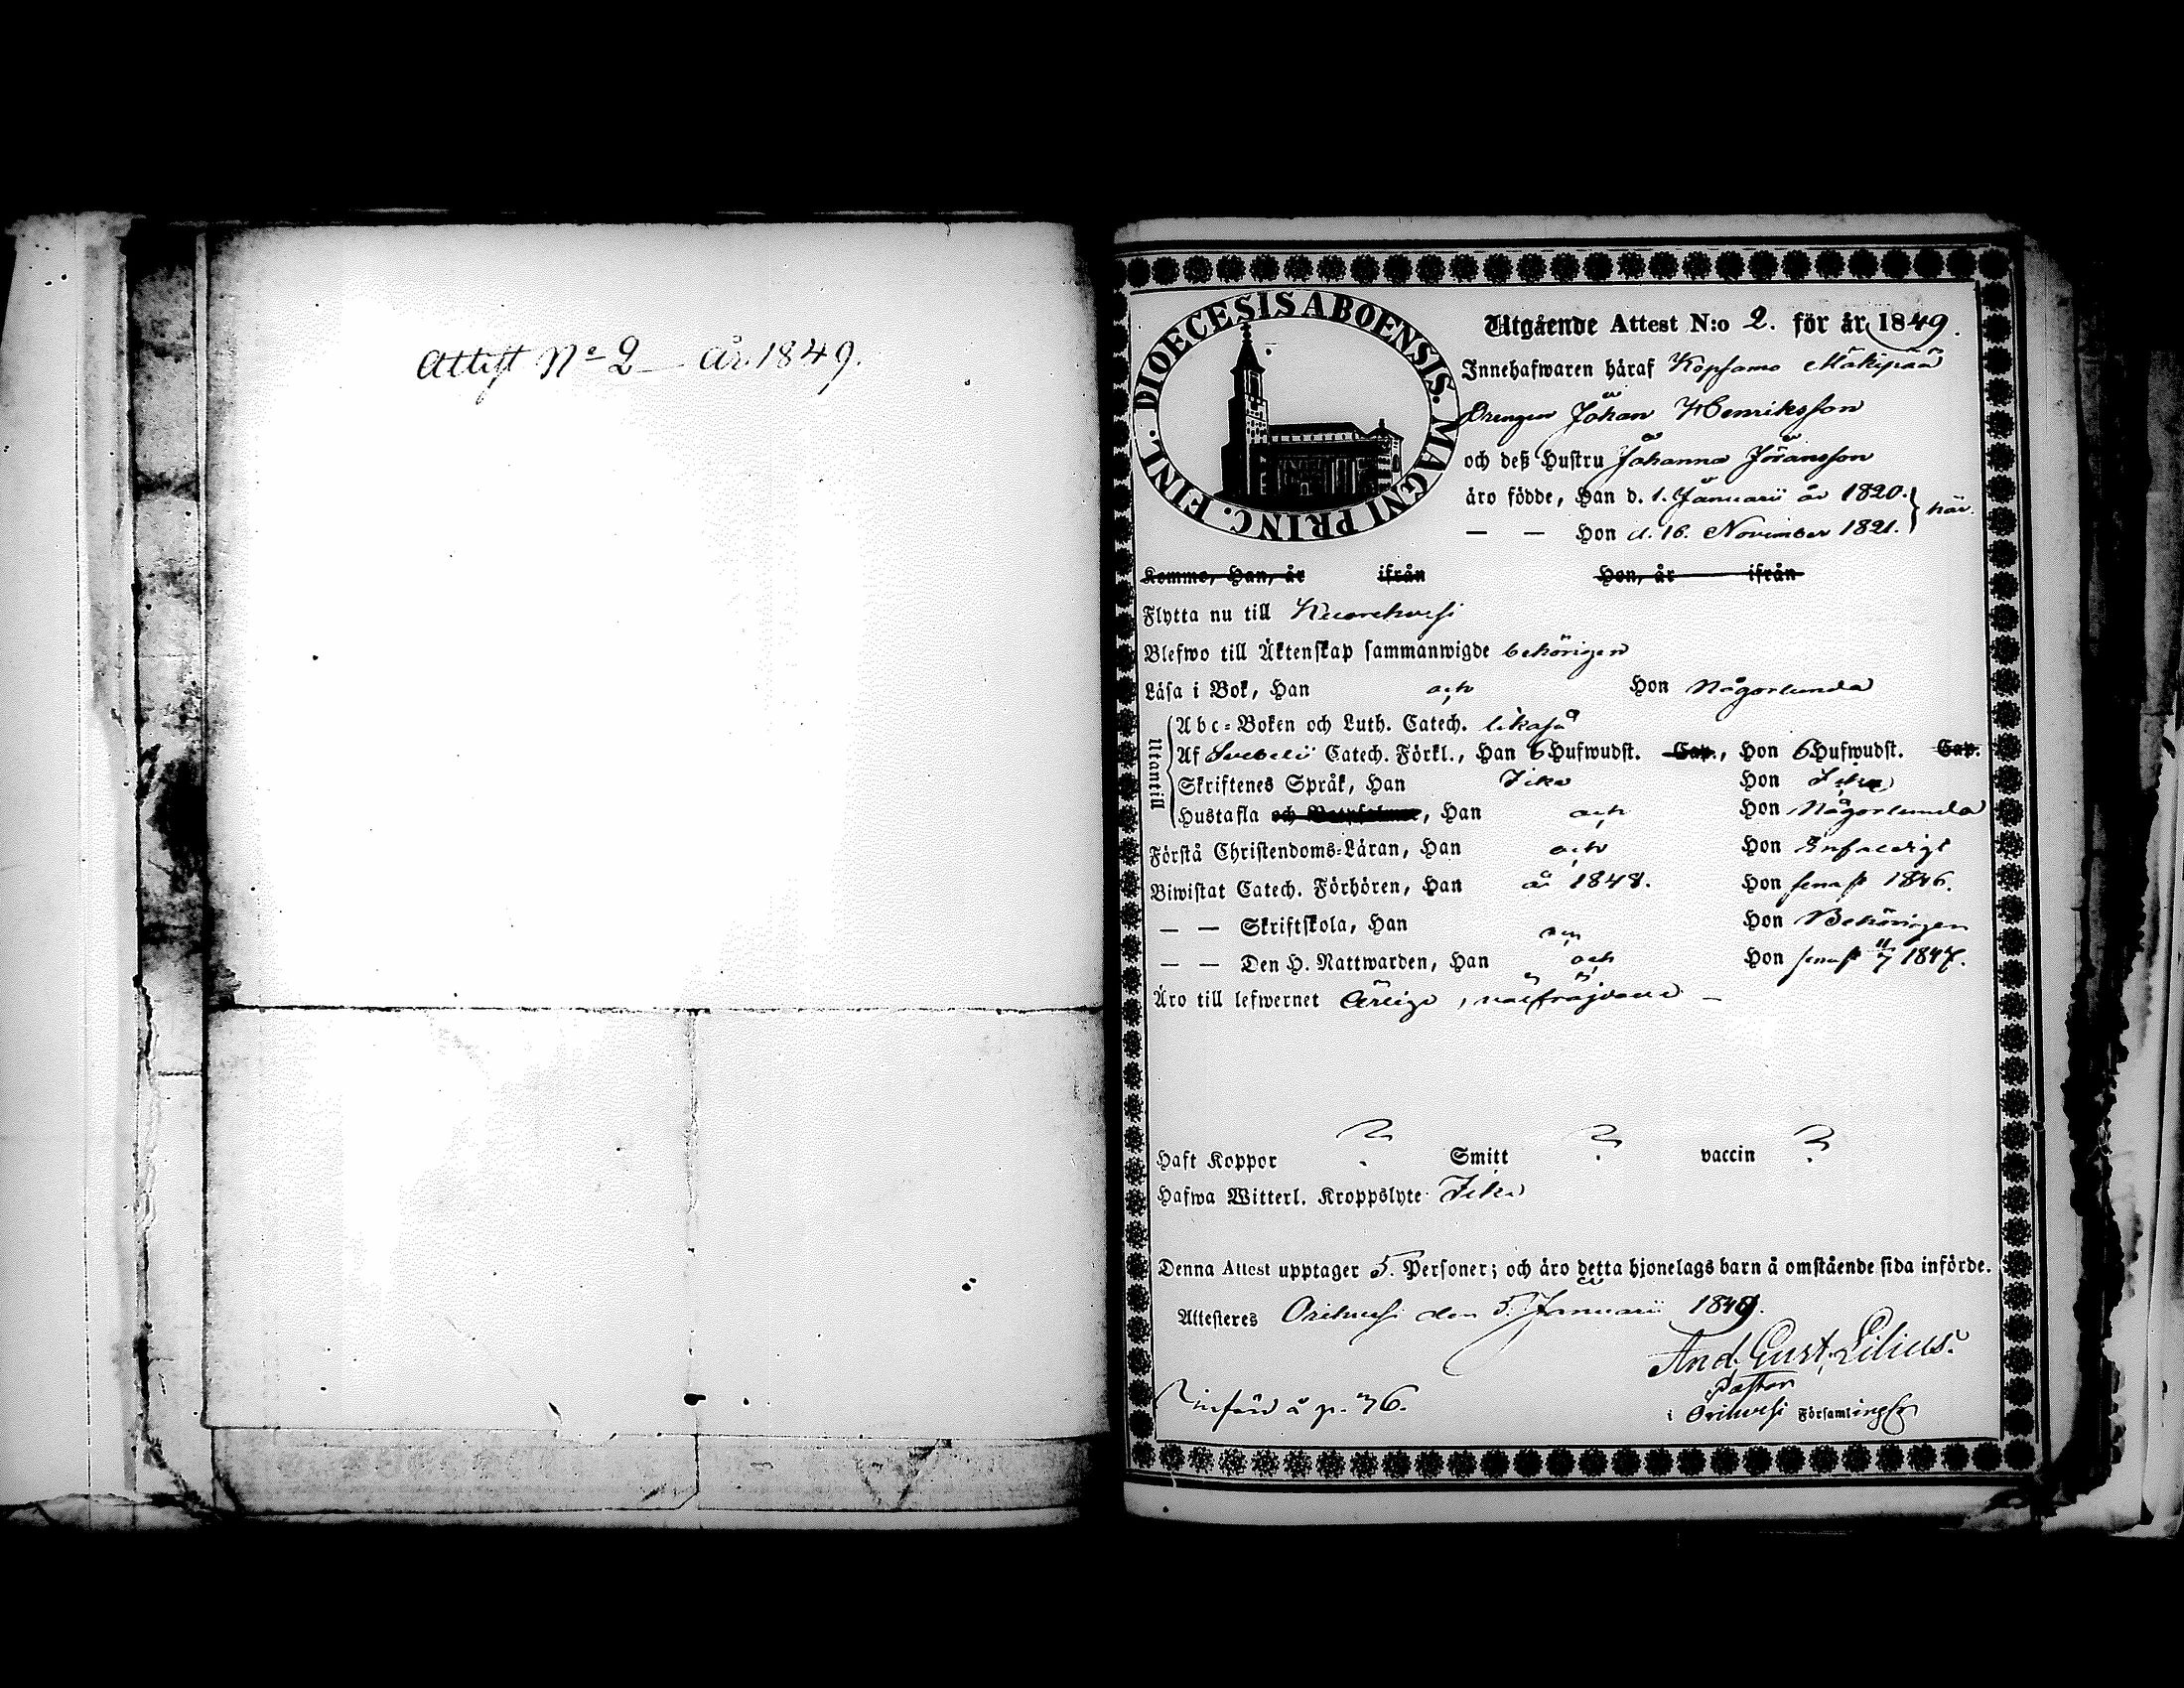 Attest No 2 år 1849.
DIOECESIS ABOENSIS. MAGNI PRINC. FINL.
Utgående Attest N:o 2. för år 1849.
Innehafwaren häraf Kopsamo Mäkipää
Drengen Johan Henriksson
och deß Hustru Johanna Jöransson
äro födde, Han d. 1. Januarii år 1820.
— — Hon d. 16. November 1821. } här.
Komma, Han, år ifrån Hon, år ifrån
Flytta nu till Kuorehvesi
Blefwo till Äktenskap sammanwigde behörigen
Läsa i Bok, Han och Hon Någorlunda
Utantill
Abc-Boken och Luth. Catech. likaså
Af Svebelii Catech. Förkl., Han 6 Hufwudst. Cap., Hon 6 Hufwudst. Cap.
Skriftenes Språk, Han Icke Hon Icke
Hustafla och, Han och Hon Någorlunda
Förstå Christendoms-Läran, Han och Hon Enfaldigt
Biwistat Catech. Förhören, Han år 1848. Hon senast 1846.
— — Skriftskola, Han och Hon Behörigen
— — Den H. Nattwarden, Han och Hon senast 11/7 1847.
Äro till lefwernet Ärlige, välfräjdade —
Haft Koppor ? Smitt ? vaccin ?
Hafwa Witterl. Kroppslyte Icke
Denna Attest upptager 5. Personer; och äro detta hjonelags barn å omstående sida införde.
Attesteres Orihvesi den 5. Januarii 1849.
And. Gust. Lilius.
Pastor
införd å p. 76.
i Orihvesi Församling